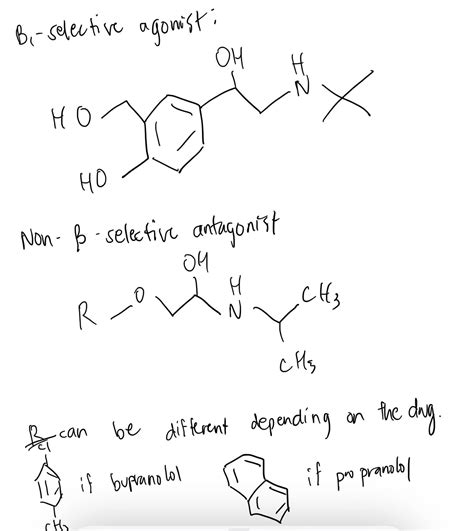 β₁-selective agonist:
OH
H
N
HO
HO
Non-β-selective antagonist
OH
R O H
N
CH₃
CH₃
R can be different depending on the drug.
Cl
if bupranolol
if propranolol
CH₃